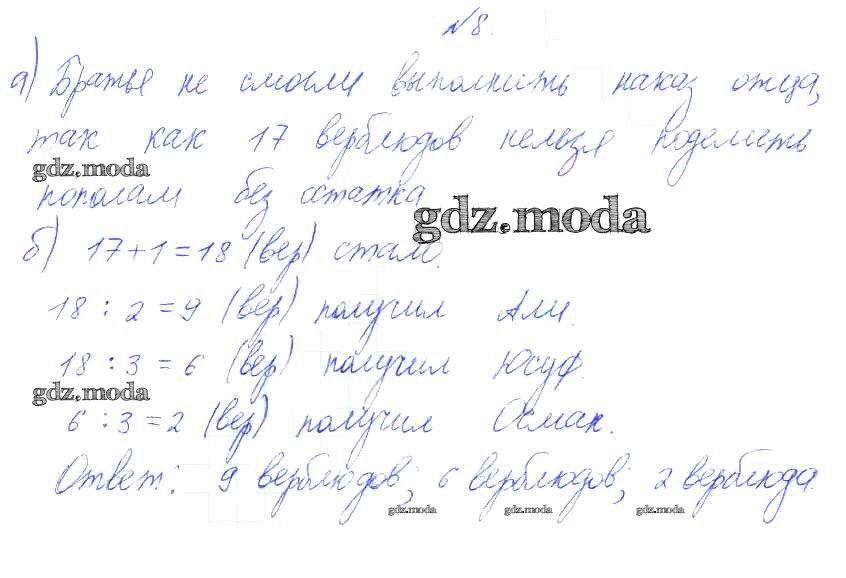 №8.
а) Братья не смогли выполнить наказ отца,
так как 17 верблюдов нельзя поделить
gdz.moda
пополам без остатка
gdz.moda
б) 17+1=18 (вер) стало.
18 : 2 = 9 (вер) получил Али.
18 : 3 = 6 (вер) получил Юсуф.
gdz.moda
6 : 3 = 2 (вер) получил Осман.
Ответ: 9 верблюдов; 6 верблюдов; 2 верблюда.
gdz.moda gdz.moda gdz.moda